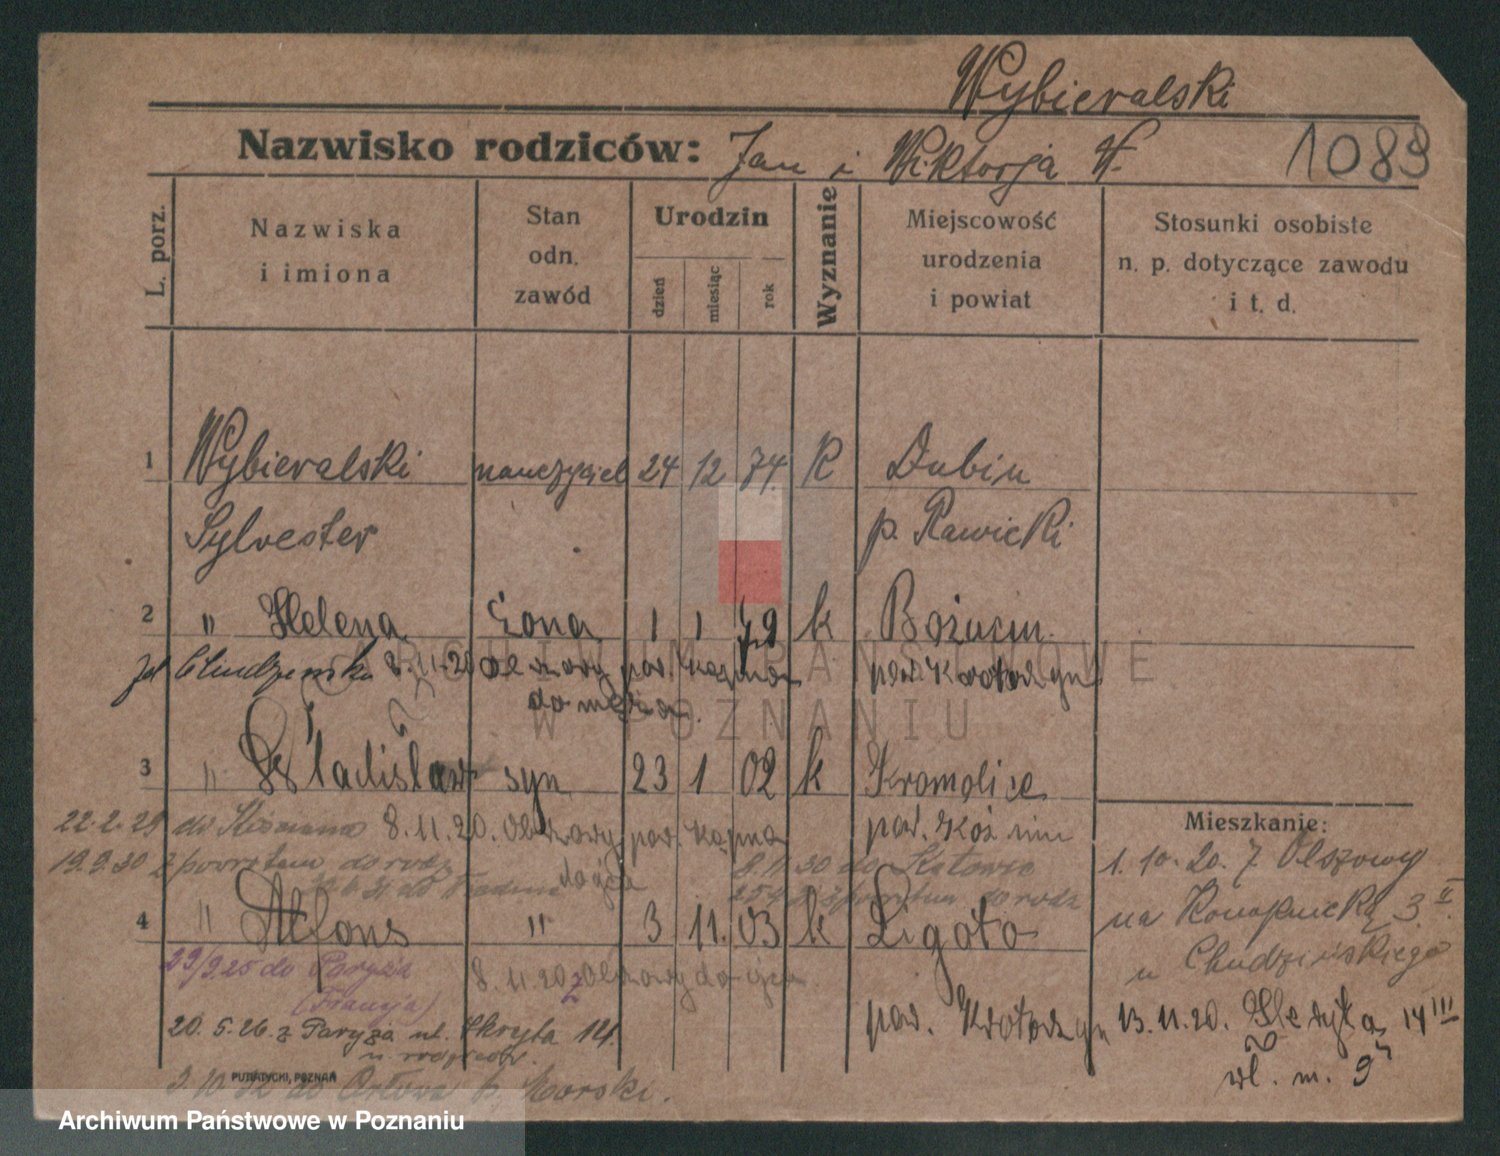 Wybieralski
Nazwisko rodziców: Jan i Wiktorja W. 1083
L. porz.
Nazwiska i imiona
Stan odn. zawód
Urodzin
dzień miesiąc rok
Wyznanie
Miejscowość urodzenia i powiat
Stosunki osobiste n. p. dotyczące zawodu i t. d.
1 Wybieralski nauczyciel 24 12 74. K Dubin
Sylvester p. Rawicki
2 " Helena żona 1 1 79 k Bożacin
8.11.20 pow. Krotoszyn
do męża.
3 " Władisław syn 23 1 02 k Kromolice
22.2.29 do 8.11.20. Olszowy pow. Kępno pow. Koźmin
19.9.30 z powrotem do rodz. 8.11.30 do Katowic
do ojca z powrotem do rodz
Mieszkanie:
1.10.20. z Olszowy
na Konopnicką 3 II.
u Chudzińskiego
13.11.20. 14 III
wł. m. 9
4 " Alfons " 3 11. 03 k Ligota
29/9.25 do Paryża 8.11.20 z Olszowy do ojca.
(Francja)
pow. Krotoszyn
20.5.26 z Paryża ul. Skryta 14.
u rodziców.
PUTIATYCKI, POZNAŃ
do Orłowa p. Morski.
ARCHIWUM PAŃSTWOWE
W POZNANIU
Archiwum Państwowe w Poznaniu